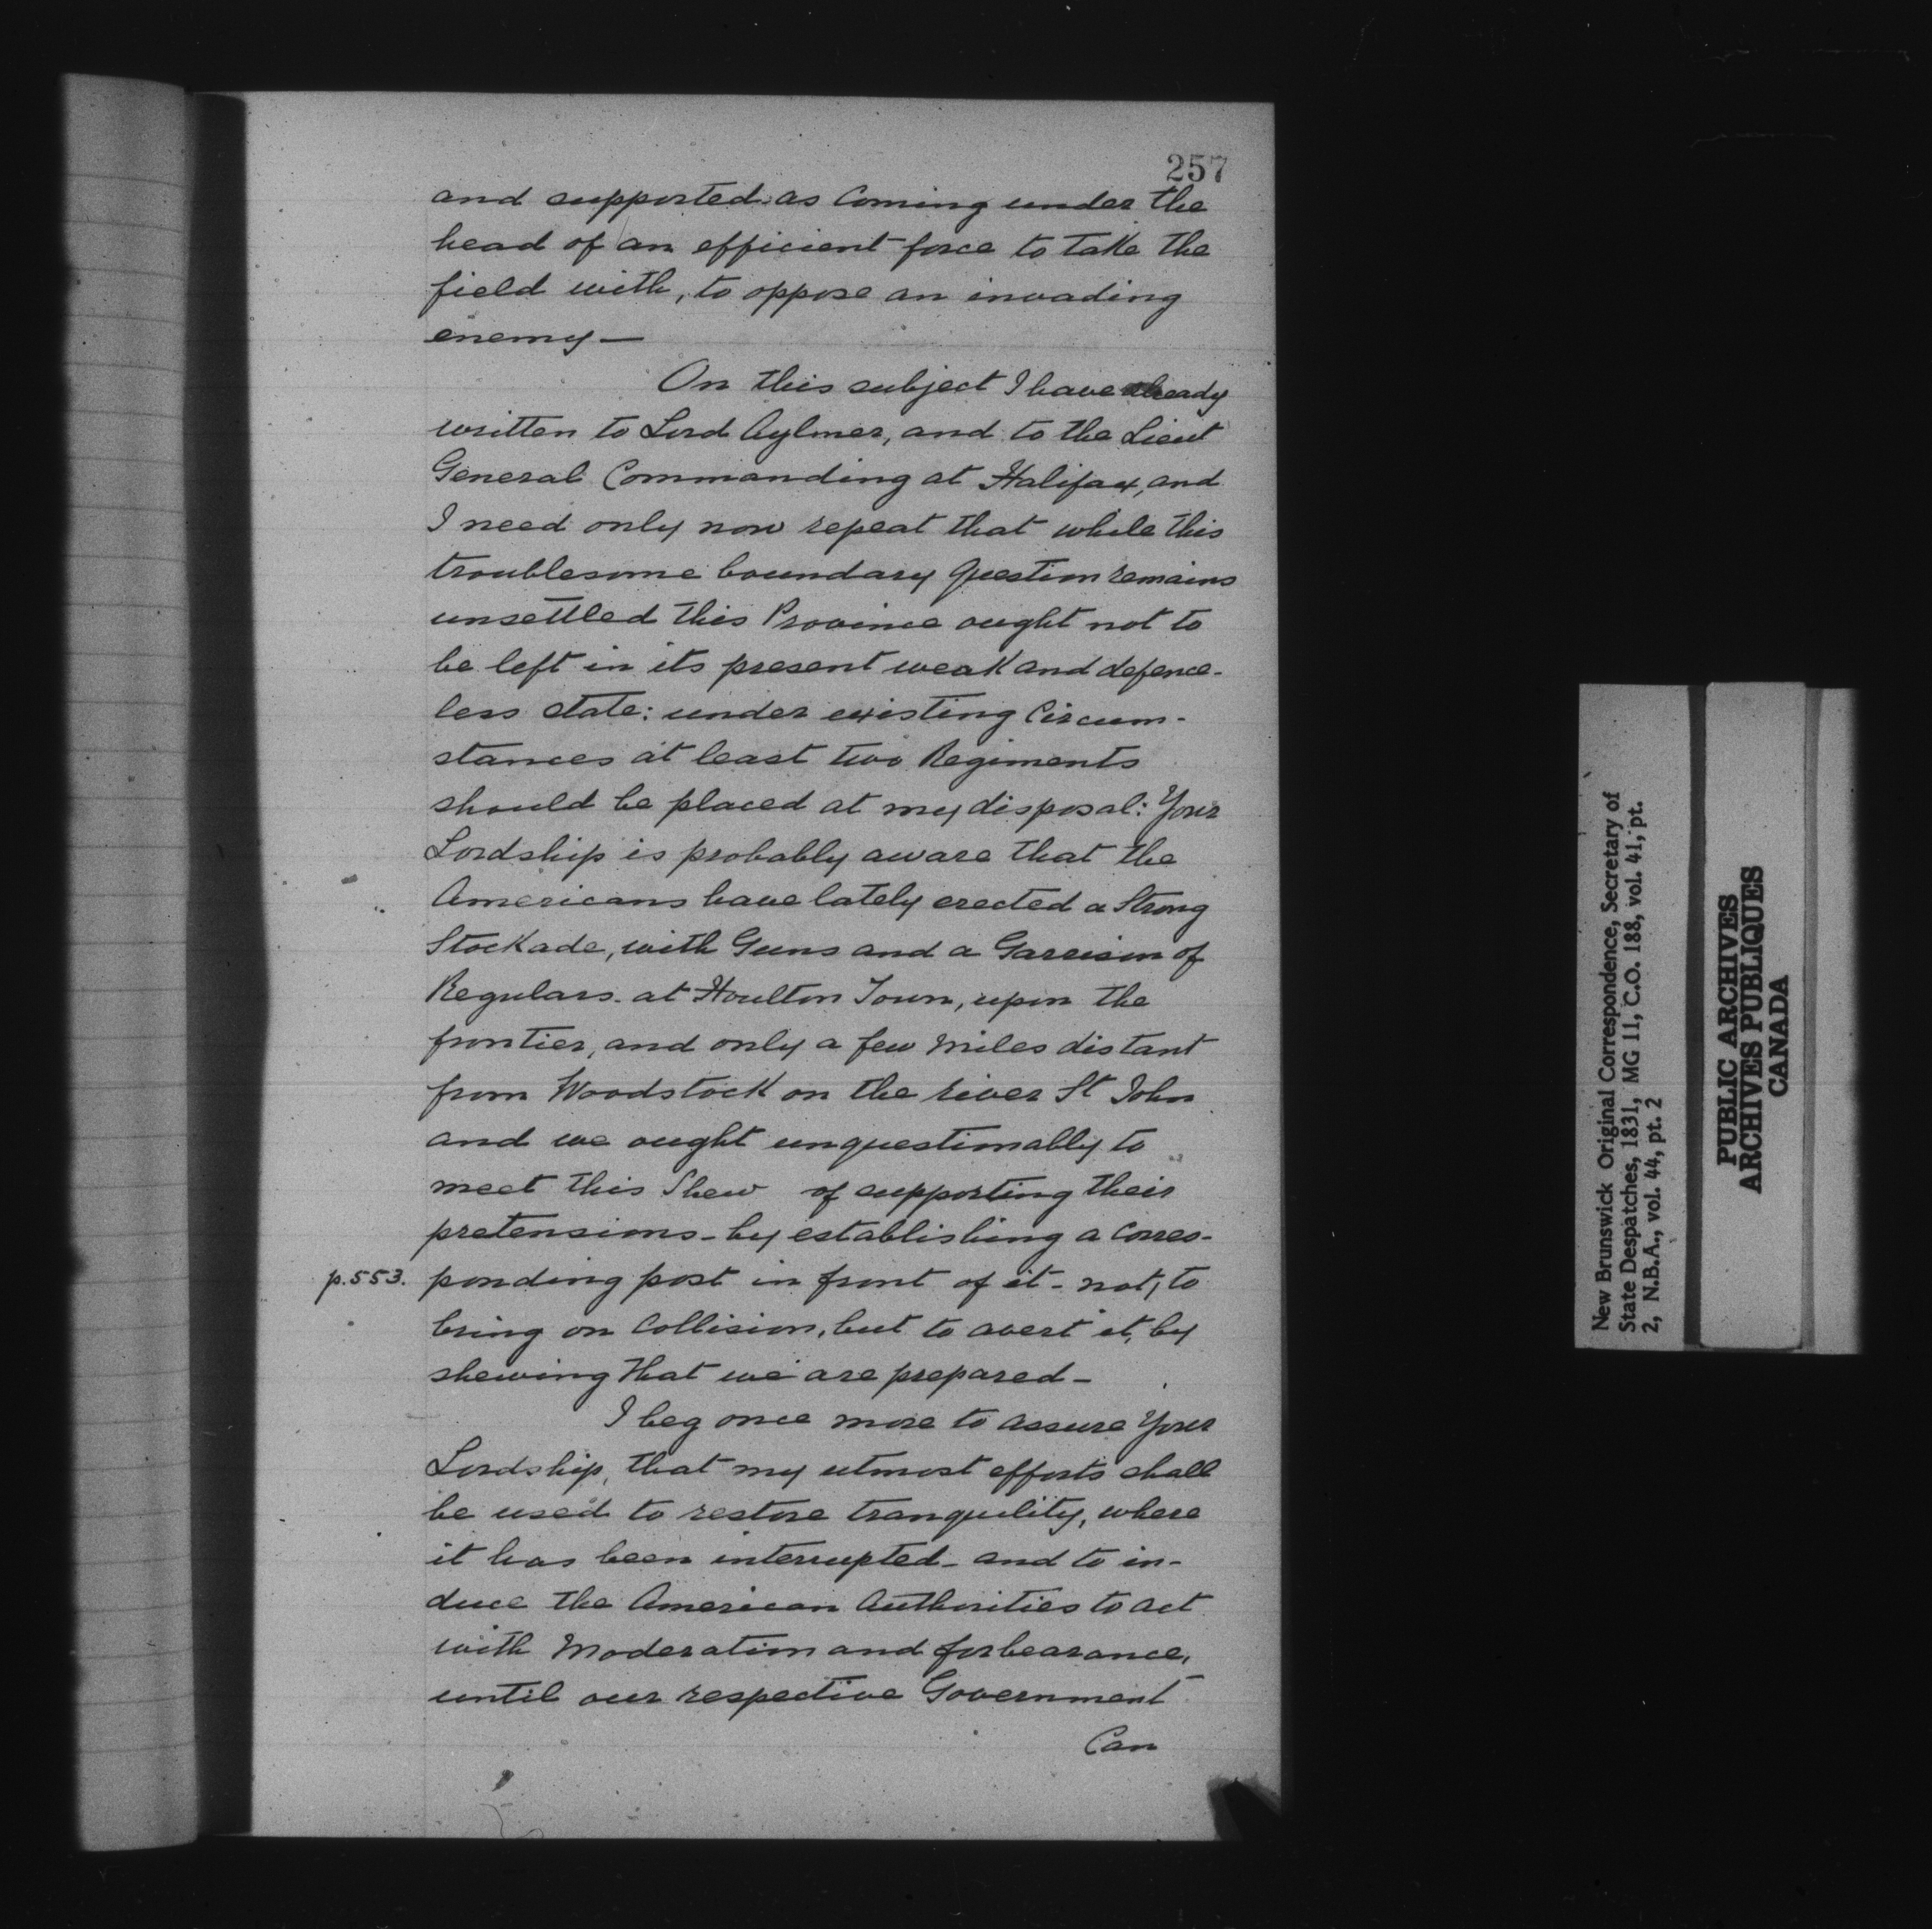 257
and supported as Coming under the
head of an efficient force to take the
field with, to oppose an invading
enemy—
On this subject I have already
written to Lord Aylmer, and to the Lieut
General Commanding at Halifax, and
I need only now repeat that while this
troublesome boundary Question remains
unsettled this Province ought not to
be left in its present weak and defence-
less state: under existing Circum-
stances at least two Regiments
should be placed at my disposal: Your
Lordship is probably aware that the
Americans have lately erected a Strong
Stockade, with Guns and a Garrison of
Regulars. at Houlton Town, upon the
frontier, and only a few miles distant
from Woodstock on the river St John
and we ought unquestionably to
meet this Shew of supporting their
pretensions - by establishing a Corres-
p.553. ponding post in front of it - not, to
bring on Collision, but to avert it, by
shewing that we are prepared -
I beg once more to assure Your
Lordship, that my utmost efforts shall
be used to restore tranquility, where
it has been interrupted - and to in-
duce the American Authorities to act
with Moderation and forbearance,
until our respective Government
Can
New Brunswick Original Correspondence, Secretary of
State Despatches, 1831, MG 11, C.O. 188, vol. 41, pt.
2, N.B.A., vol. 44, pt. 2
PUBLIC ARCHIVES
ARCHIVES PUBLIQUES
CANADA